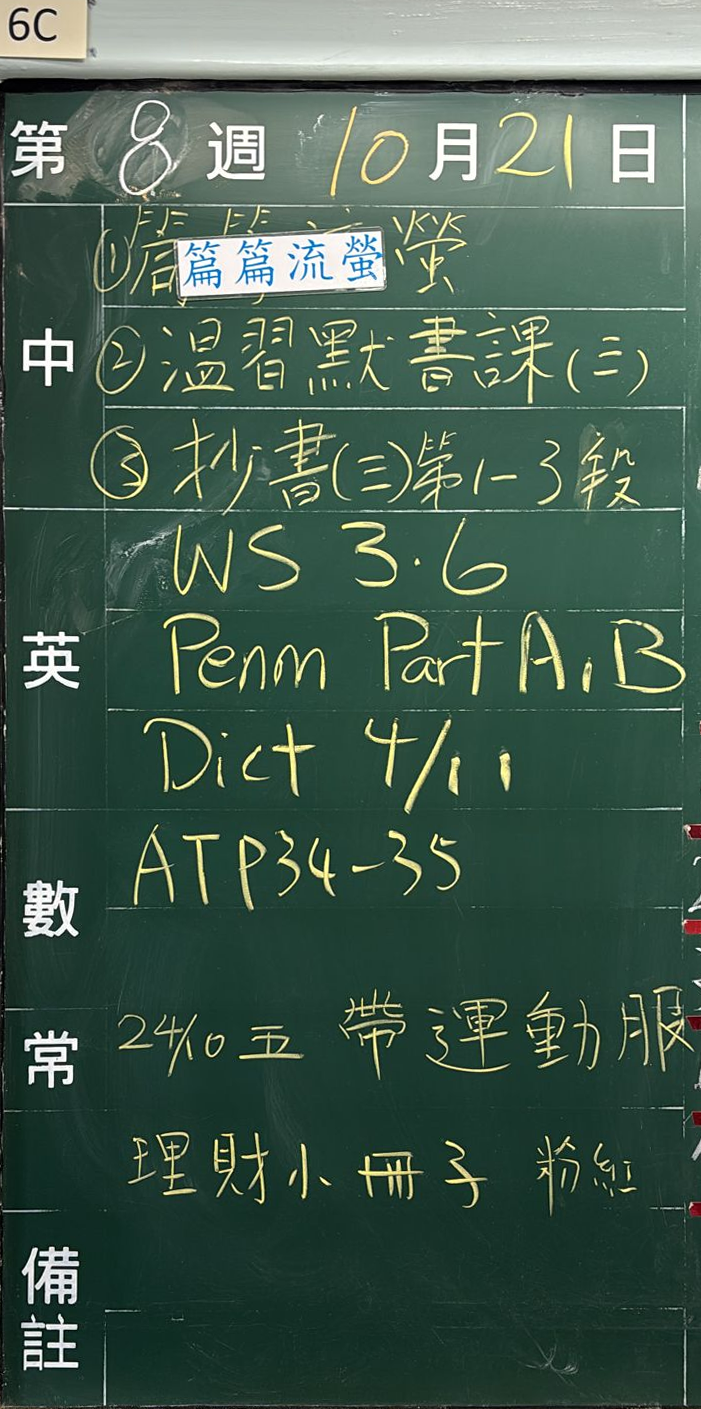 6C
第 8 週 10 月 21 日
中
①篇篇流螢
篇篇流螢
②温習默書課(三)
③抄書(三)第1-3段
英
WS 3.6
Penm Part A,B
Dict 4/11
數
ATP34-35
常
24/10 五 帶運動服
理財小冊子 粉紅
備註